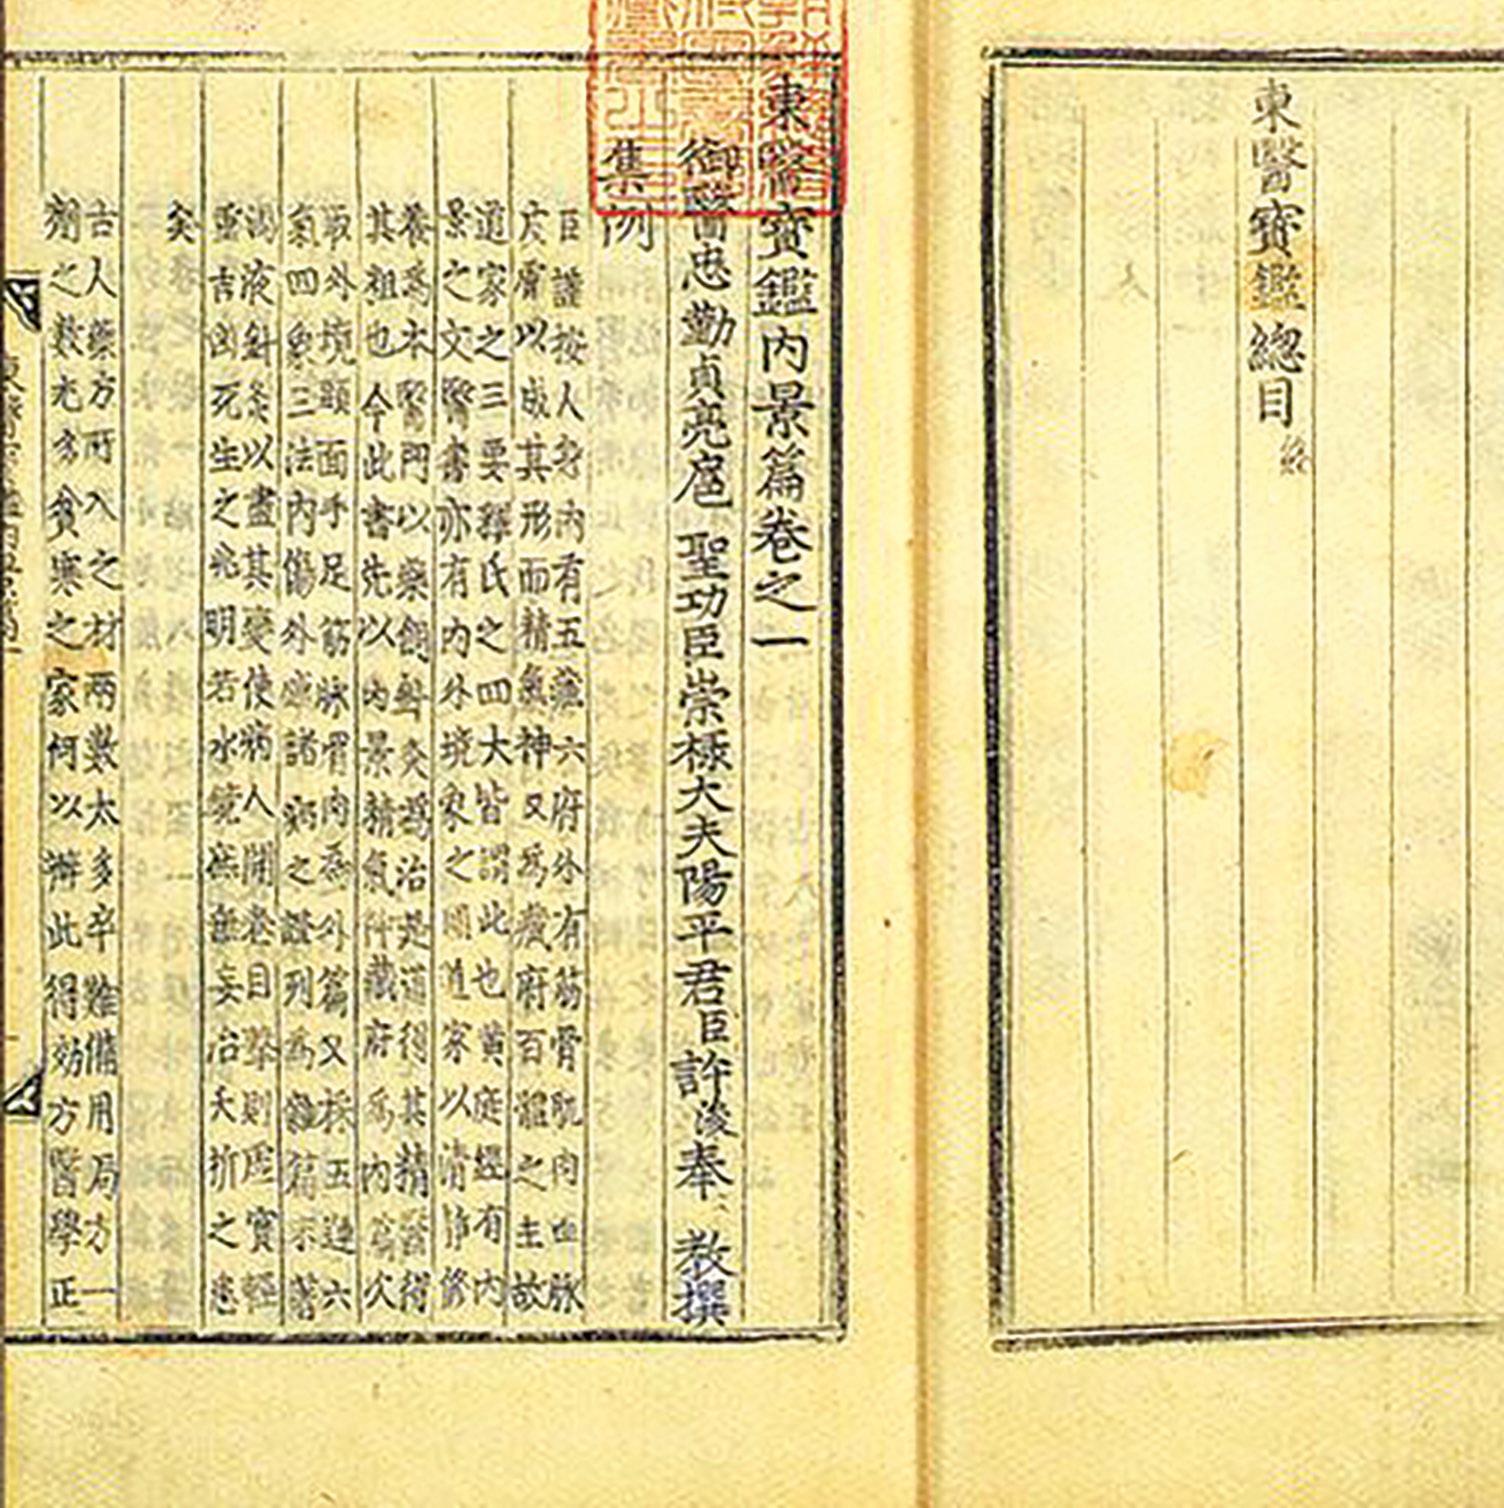 東醫寶鑑總目 終
東醫寶鑑內景篇卷之一
御醫忠勤貞亮扈 聖功臣崇祿大夫陽平君臣許浚奉 敎撰
集例
臣謹按人身內有五藏六府外有筋骨肌肉血脉
皮膚以成其形而精氣神又爲藏府百體之主故
道家之三要釋氏之四大皆謂此也黃庭經有內
景之文醫書亦有內外境象之圖道家以淸靜修
養爲本醫門以藥餌針灸爲治是道得其精醫得
其粗也今此書先以內景精氣神藏府爲內篇次
取外境頭面手足筋脉骨肉爲外篇又採五運六
氣四象三法內傷外感諸病之證列爲雜篇末著
湯液針灸以盡其變使病人開卷目擊則虛實輕
重吉凶死生之兆明若水鏡庶無妄治夭折之患
矣
古人藥方所入之材兩數太多卒難備用局方一
劑之數尤多貧寒之家何以辦此得効方醫學正